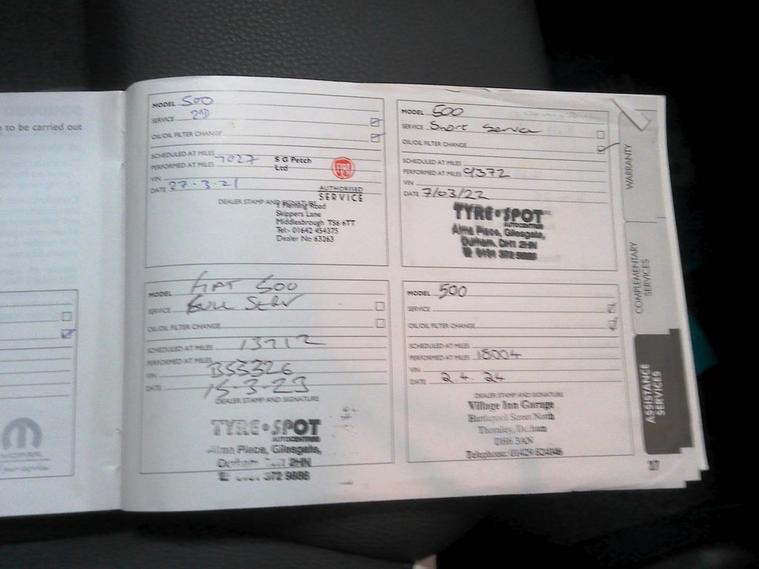 n to be carried out
MODEL 500
SERVICE 2ND
OIL/OIL FILTER CHANGE
SCHEDULED AT MILES
PERFORMED AT MILES 7027
VIN
DATE 27-3-21
S G Petch
Ltd
AUTHORISED
SERVICE
DEALER STAMP AND SIGNATURE
Fleming Road
Skippers Lane
Middlesbrough TS6 6TT
Tel:- 01642 454375
Dealer No 63263
MODEL 500
SERVICE Short Service
OIL/OIL FILTER CHANGE
SCHEDULED AT MILES
PERFORMED AT MILES 9372
VIN
DATE 7/03/22
TYRE SPOT
AUTOCENTRES
Alma Place, Gilesgate,
Durham. DH1 2HN
MODEL FIAT 500
SERVICE FULL Serv
OIL/OIL FILTER CHANGE
SCHEDULED AT MILES 13712
PERFORMED AT MILES
VIN BS5326
DATE 15-3-23
DEALER STAMP AND SIGNATURE
TYRE SPOT
AUTOCENTRES
Alma Place, Gilesgate,
Durham 2HN
372 9886
MODEL 500
SERVICE
OIL/OIL FILTER CHANGE
SCHEDULED AT MILES
PERFORMED AT MILES 18004
VIN
DATE 2.4.24
DEALER STAMP AND SIGNATURE
Village Inn Garage
Hartlepool Street North
Thornley, Durham
DH6 3AN
Telephone:
WARRANTY
COMPLEMENTARY
SERVICES
ASSISTANCE
SERVICES